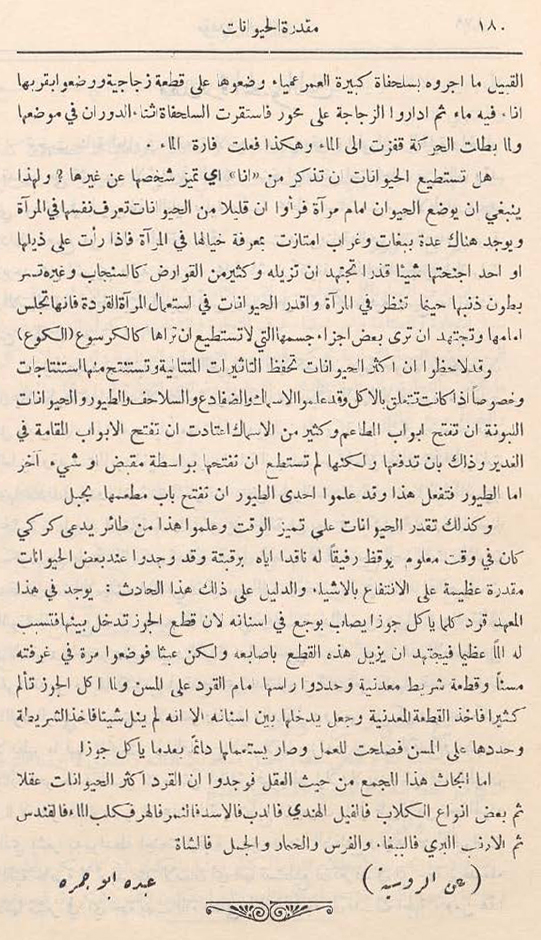 ١٨٠ مقدرة الحيوانات
القبيل ما اجروه بسلحفاة كبيرة العمر عمياء وضعوها على قطعة زجاجية ووضعوا بقربها
اناء فيه ماء ثم اداروا الزجاجة على محور فاستقرت السلحفاة اثناء الدوران في موضعها
ولما بطلت الحركة قفزت الى الماء وهكذا فعلت فارة الماء .
هل تستطيع الحيوانات ان تذكر من «انا» اي تميز شخصها عن غيرها ? ولهذا
ينبغي ان يوضع الحيوان امام مرآة فرأوا ان قليلا من الحيوانات تعرف نفسها في المرآة
ويوجد هناك عدة ببغات وغراب امتازت بمعرفة خيالها في المرآة فاذا رأت على ذيلها
او احد اجنحتها شيئا قذرا تجتهد ان تزيله وكثير من القوارض كالسنجاب وغيره تسر
بطون ذنبها حينما تنظر في المرآة واقدر الحيوانات في استعمال المرآة القردة فانها تجلس
امامها وتجتهد ان ترى بعض اجزاء جسمها التي لا تستطيع ان تراها كالكرسوع (الكوع)
وقد لاحظوا ان اكثر الحيوانات تحفظ التاثيرات المتتالية وتستنتج منها استنتاجات
وخصوصاً اذا كانت تتعلق بالاكل وقد علموا الاسماك والضفادع والسلاحف والطيور والحيوانات
اللبونة ان تفتح ابواب المطاعم وكثير من الاسماك اعتادت ان تفتح الابواب المقامة في
الغدير وذلك بان تدفعها ولكنها لم تستطع ان تفتحها بواسطة مقبض او شيء آخر
اما الطيور فتفعل هذا وقد علموا احدى الطيور ان تفتح باب مطعمها بحبل
وكذلك تقدر الحيوانات على تميز الوقت وعلموا هذا من طائر يدعى كركي
كان في وقت معلوم يوقظ رفيقاً له ناقدا اياه برقبته وقد وجدوا عند بعض الحيوانات
مقدرة عظيمة على الانتفاع بالاشياء والدليل على ذلك هذا الحادث : يوجد في هذا
المعهد قرد كلما ياكل جوزا يصاب بوجع في اسنانه لان قطع الجوز تدخل بينها فتسبب
له الماً عظيما فيجتهد ان يزيل هذه القطع باصابعه ولكن عبثا فوضعوا مرة في غرفته
مسناً وقطعة شريط معدنية وحددوا راسها امام القرد على المسن ولما اكل الجوز تألم
كثيرا فاخذ القطعة المعدنية وجعل يدخلها بين اسنانه الا انه لم ينل شيئا فاخذ الشريطة
وحددها على المسن فصلحت للعمل وصار يستعملها دائماً بعدما ياكل جوزا
اما ابحاث هذا المجمع من حيث العقل فوجدوا ان القرد اكثر الحيوانات عقلا
ثم بعض انواع الكلاب فالفيل الهندي فالدب فالاسد فالنمر فالهر فكلب الماء فالقندس
ثم الارنب البري فالببغاء والفرس والحمار والجمل فالشاة
(عن الروسية) عبده ابو جمره